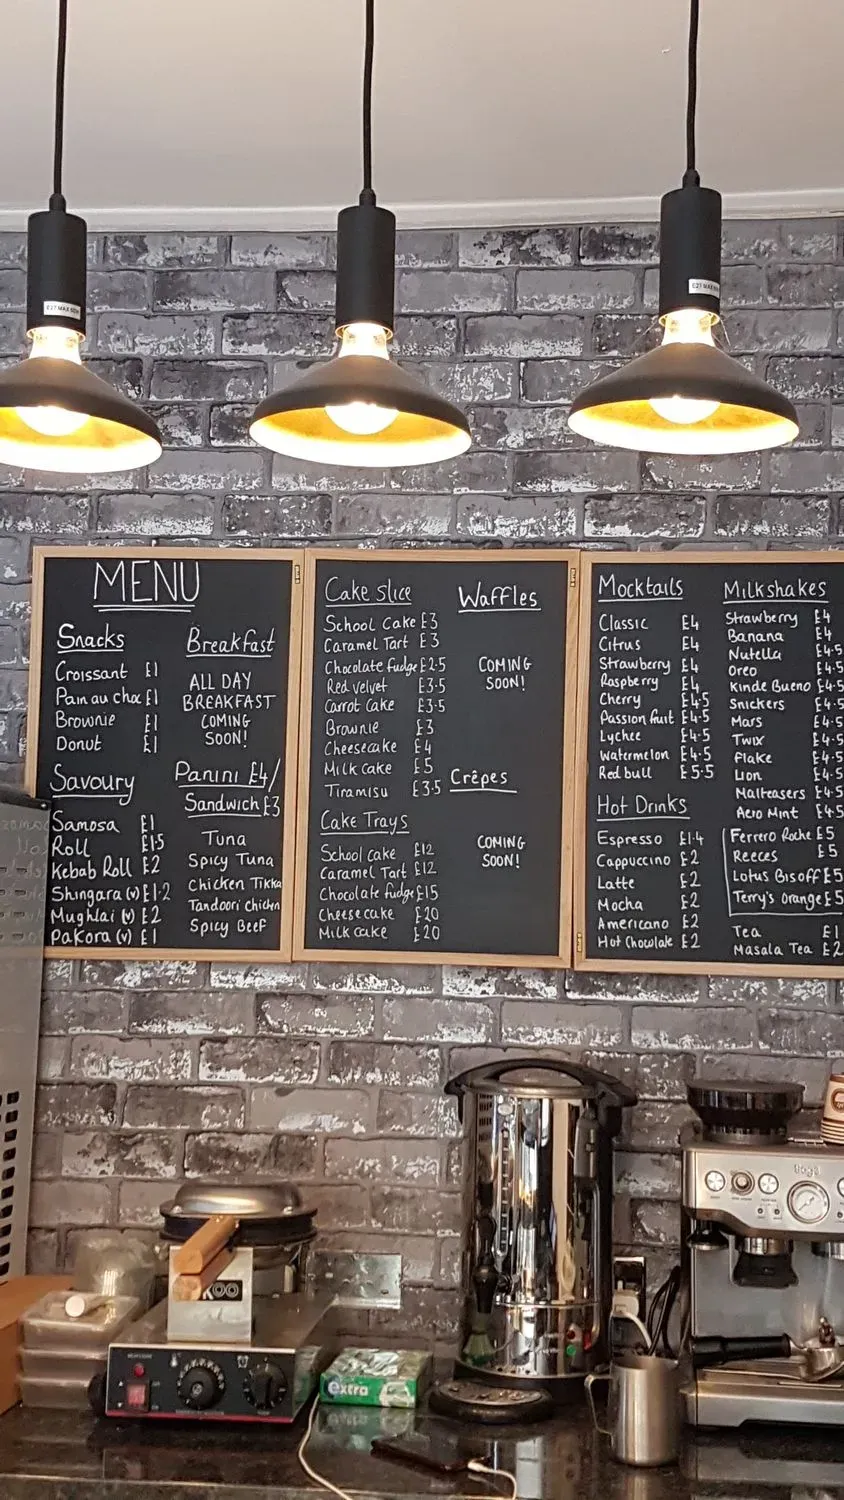 E27 MAX 60W
MENU
Snacks
Croissant £1
Pain au choc £1
Brownie £1
Donut £1
Savoury
Samosa £1
Roll £1·5
Kebab Roll £2
Shingara (v) £1·2
Mughlai (v) £2
Pakora (v) £1
Breakfast
ALL DAY
BREAKFAST
COMING
SOON!
Panini £4/
Sandwich £3
Tuna
Spicy Tuna
Chicken Tikka
Tandoori chicken
Spicy Beef
Cake slice
School Cake £3
Caramel Tart £3
Chocolate fudge £2·5
Red velvet £3·5
Carrot Cake £3·5
Brownie £3
Cheesecake £4
Milk cake £5
Tiramisu £3·5
Cake Trays
School cake £12
Caramel Tart £12
Chocolate fudge £15
Cheese cake £20
Milk cake £20
Waffles
COMING
SOON!
Crêpes
COMING
SOON!
Mocktails
Classic £4
Citrus £4
Strawberry £4
Raspberry £4
Cherry £4·5
Passion fruit £4·5
Lychee £4·5
Watermelon £4·5
Red bull £5·5
Hot Drinks
Espresso £1·4
Cappuccino £2
Latte £2
Mocha £2
Americano £2
Hot Chocolate £2
Milkshakes
Strawberry £4
Banana £4
Nutella £4·5
Oreo £4·5
Kinde Bueno £4·5
Snickers £4·5
Mars £4·5
Twix £4·5
Flake £4·5
Lion £4·5
Malteasers £4·5
Aero Mint £4·5
Ferrero Roche £5
Reeces £5
Lotus Bisoff £5
Terry's Orange £5
Tea £1
Masala Tea £2
extra